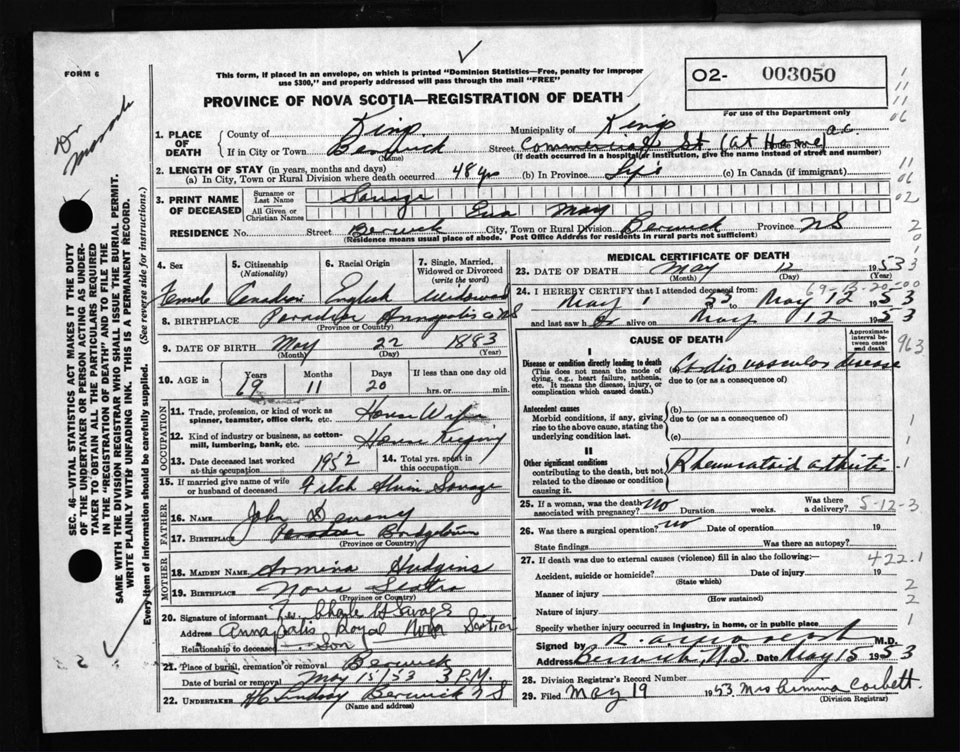 FORM 6
This form, if placed in an envelope, on which is printed "Dominion Statistics—Free, penalty for improper
use $300," and properly addressed will pass through the mail "FREE"
O2- 003050
For use of the Department only
PROVINCE OF NOVA SCOTIA—REGISTRATION OF DEATH
Dr
SEC. 46—VITAL STATISTICS ACT MAKES IT THE DUTY
OF THE UNDERTAKER OR PERSON ACTING AS UNDERTAKER TO OBTAIN ALL THE PARTICULARS REQUIRED
IN THE "REGISTRATION OF DEATH" AND TO FILE THE
SAME WITH THE DIVISION REGISTRAR WHO SHALL ISSUE THE BURIAL PERMIT.
WRITE PLAINLY WITH UNFADING INK. THIS IS A PERMANENT RECORD.
Every item of information should be carefully supplied. (See reverse side for instructions.)
1. PLACE OF DEATH
County of Kings Municipality of Kings
If in City or Town Berwick Street Commercial St. (At Home) House No.
(Name) (If death occurred in a hospital or institution, give the name instead of street and number)
2. LENGTH OF STAY (in years, months and days)
(a) In City, Town or Rural Division where death occurred 48 yrs (b) In Province Life (c) In Canada (if immigrant)
3. PRINT NAME OF DECEASED
Surname or Last Name Savage
All Given or Christian Names Eva May
RESIDENCE No. Street Berwick City, Town or Rural Division Berwick Province NS
(Residence means usual place of abode. Post Office Address for residents in rural parts not sufficient)
4. Sex Female
5. Citizenship (Nationality) Canadian
6. Racial Origin English
7. Single, Married, Widowed or Divorced (write the word) Widowed
8. BIRTHPLACE Paradise Annapolis Co NS
(Province or Country)
9. DATE OF BIRTH May 22 1883
(Month) (Day) (Year)
10. AGE in Years 69 Months 11 Days 20 If less than one day old hrs. or min.
OCCUPATION
11. Trade, profession, or kind of work as spinner, teamster, office clerk, etc. House Wife
12. Kind of industry or business, as cotton-mill, lumbering, bank, etc. House Keeping
13. Date deceased last worked at this occupation 1952
14. Total yrs. spent in this occupation
15. If married give name of wife or husband of deceased Fitch Alvin Savage
FATHER
16. NAME John
17. BIRTHPLACE Paradise Bridgetown
(Province or Country)
MOTHER
18. MAIDEN NAME Armina Hudgins
19. BIRTHPLACE Nova Scotia
(Province or Country)
20. Signature of informant Savage
Address Annapolis Royal Nova Scotia
Relationship to deceased Son
21. Place of burial, cremation or removal Berwick
Date of burial or removal May 15/53 3 P.M.
22. UNDERTAKER Lindsay Berwick NS
(Name and address)
MEDICAL CERTIFICATE OF DEATH
23. DATE OF DEATH May 12 1953
(Month) (Day)
69-13-20-00
24. I HEREBY CERTIFY that I attended deceased from:
May 1 53 to May 12 1953
and last saw her alive on May 12 1953
CAUSE OF DEATH
Approximate interval between onset and death
I
Disease or condition directly leading to death
(This does not mean the mode of dying, e.g., heart failure, asthenia, etc. It means the disease, injury, or complication which caused death.)
Cardio vascular disease
due to (or as a consequence of)
963
Antecedent causes
Morbid conditions, if any, giving rise to the above cause, stating the underlying condition last.
(b)
due to (or as a consequence of)
(c)
II
Other significant conditions
contributing to the death, but not related to the disease or condition causing it.
Rheumatoid arthritis
25. If a woman, was the death associated with pregnancy? No Duration weeks. Was there a delivery? 5-12-3
26. Was there a surgical operation? no Date of operation 19
State findings Was there an autopsy?
27. If death was due to external causes (violence) fill in also the following:
422.1
Accident, suicide or homicide? Date of injury 19
(State which)
Manner of injury
(How sustained)
Nature of injury
Specify whether injury occurred in industry, in home, or in public place
Signed by M.D.
Address Berwick, N.S. Date May 15 1953
28. Division Registrar's Record Number
29. Filed May 19 1953 Mrs Armina Corbett
(Division Registrar)